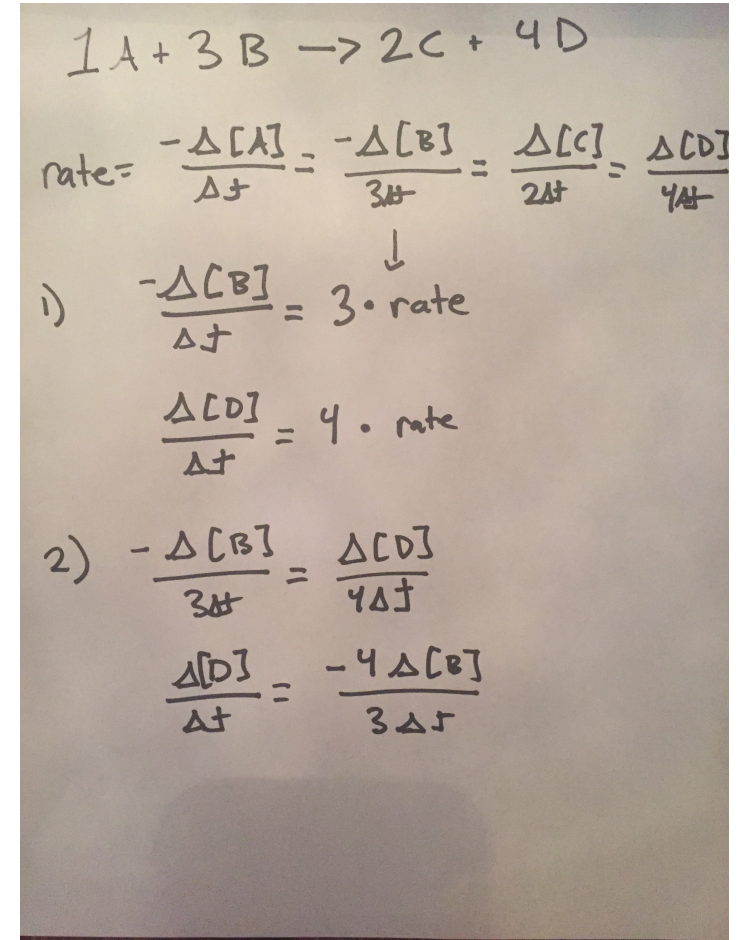 1A + 3B —> 2C + 4D
rate = -Δ[A]/Δt = -Δ[B]/3Δt = Δ[C]/2Δt = Δ[D]/4Δt
↓
1) -Δ[B]/Δt = 3 · rate
Δ[D]/Δt = 4 · rate
2) -Δ[B]/3Δt = Δ[D]/4Δt
Δ[D]/Δt = -4Δ[B]/3Δt